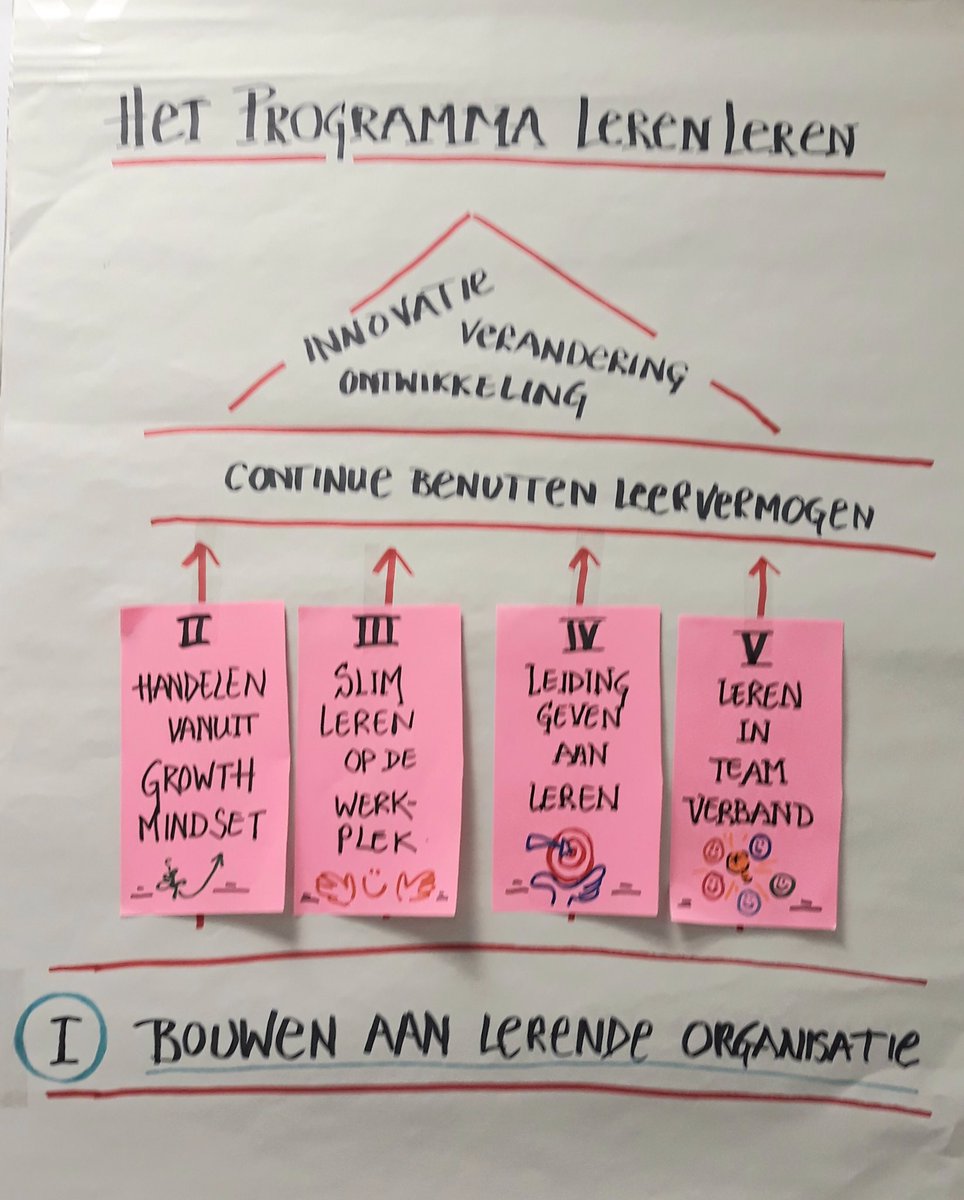 HET PROGRAMMA LEREN LEREN
INNOVATIE
VERANDERING
ONTWIKKELING
CONTINUE BENUTTEN LEERVERMOGEN
II
HANDELEN
VANUIT
GROWTH
MINDSET
III
SLIM
LEREN
OP DE
WERK-
PLEK
IV
LEIDING
GEVEN
AAN
LEREN
V
LEREN
IN
TEAM
VERBAND
I BOUWEN AAN LERENDE ORGANISATIE